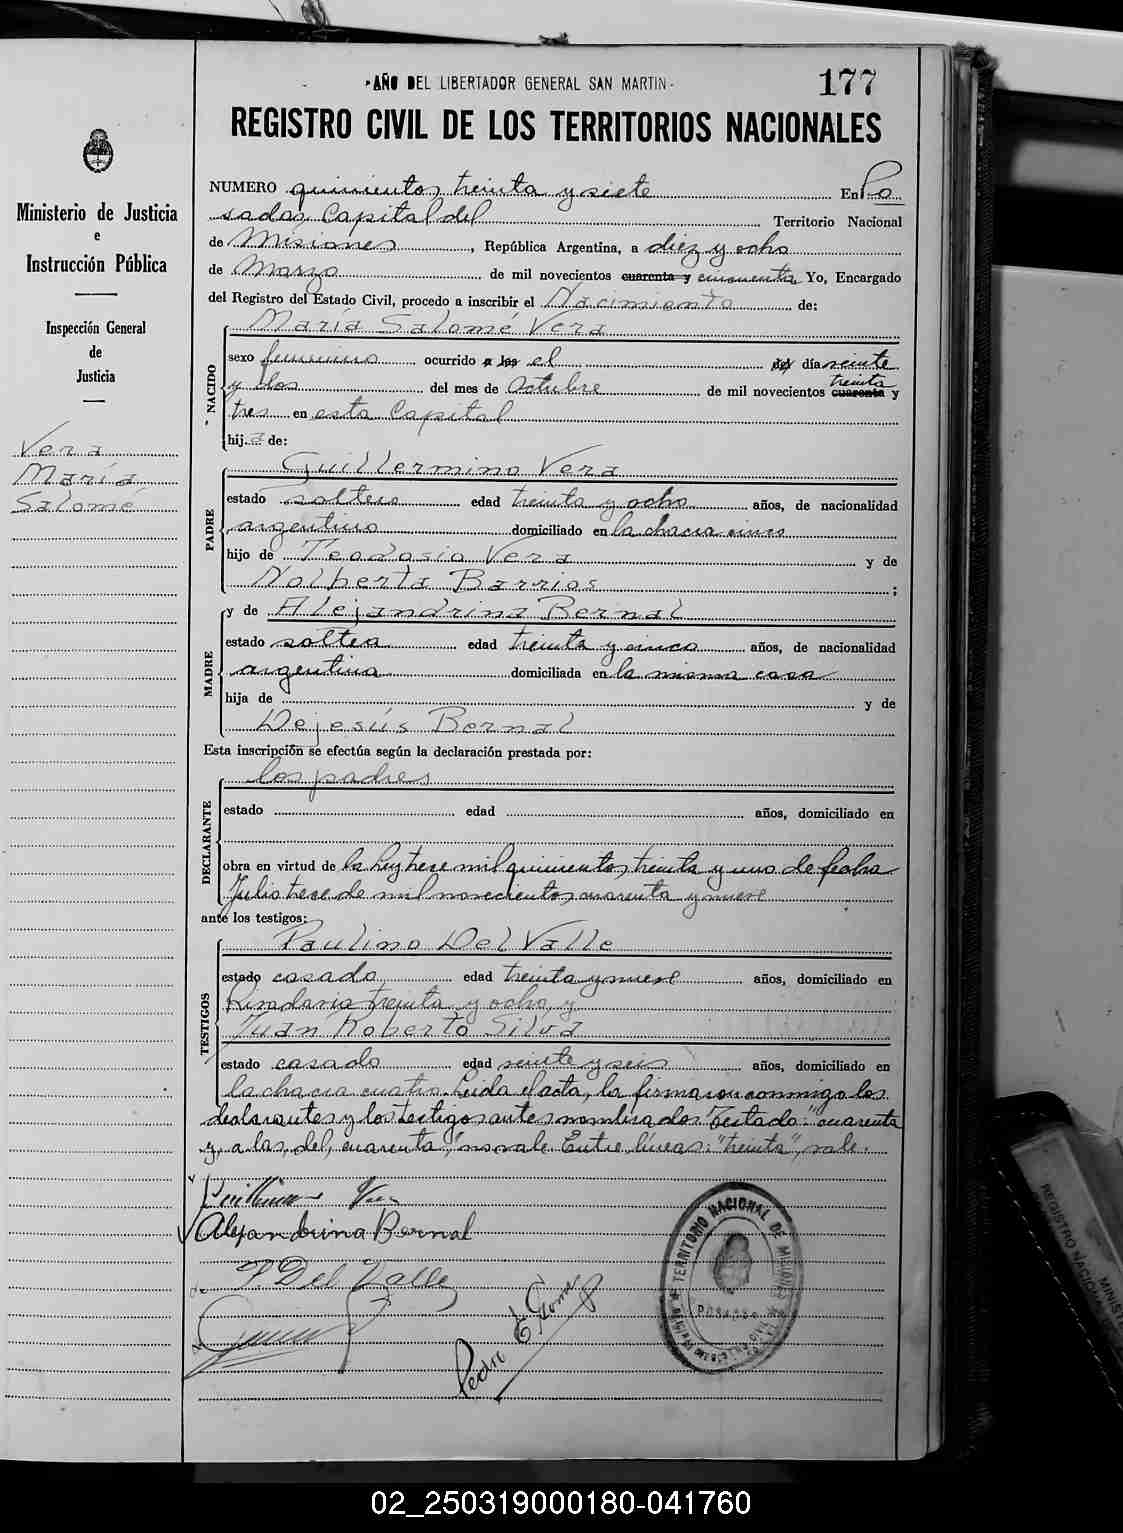 -AÑO DEL LIBERTADOR GENERAL SAN MARTIN-
177
REGISTRO CIVIL DE LOS TERRITORIOS NACIONALES
Ministerio de Justicia
e
Instrucción Pública
Inspección General
de
Justicia
Vera
María
Salomé
NUMERO quinientos treinta y siete En Po
sadas Capital del Territorio Nacional
de Misiones, República Argentina, a diez y ocho
de Marzo de mil novecientos cuarenta y cincuenta Yo, Encargado
del Registro del Estado Civil, procedo a inscribir el Nacimiento de:
María Salomé Vera
NACIDO
sexo femenino ocurrido a las el del día veinte
y dos del mes de Octubre de mil novecientos cuarenta treinta y
tres en esta Capital
hija de:
Guillermino Vera
PADRE
estado soltero edad treinta y ocho años, de nacionalidad
argentino domiciliado en la chacra cinco
hijo de Teodosio Vera y de
Nolberta Barrios;
y de Alejandrina Bernal
MADRE
estado soltera edad treinta y cinco años, de nacionalidad
argentina domiciliada en la misma casa
hija de y de
Dejesús Bernal
Esta inscripción se efectúa según la declaración prestada por:
los padres
DECLARANTE
estado edad años, domiciliado en
obra en virtud de la Ley trece mil quinientos treinta y uno de fecha
Julio trece de mil novecientos cuarenta y nueve
ante los testigos:
Paulino Del Valle
TESTIGOS
estado casado edad treinta y nueve años, domiciliado en
Rivadavia treinta y ocho, y
Juan Roberto Silva
estado casado edad veinte y seis años, domiciliado en
la chacra cuatro. Leida el acta, la firmaron conmigo los
declarantes y los testigos antes nombrados. Testado: "cuarenta
y, a las, del, cuarenta", no vale. Entre líneas: "treinta", vale.
Guillermino Vera
Alejandrina Bernal
P Del Valle
Pedro E.
TERRITORIO NACIONAL DE MISIONES
POSADAS
REGISTRO NACIONAL
MINIST
02_250319000180-041760